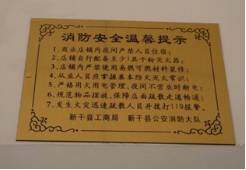 消防安全温馨提示
1、商业店铺夜间严禁人员住宿；
2、店铺自行配备至少1具干粉灭火器；
3、店铺内严禁使用易燃可燃材料装修；
4、从业人员应掌握基本防火灭火常识；
5、严格用火用电管理，夜间不营业时断电；
6、规范物品摆放，保障店面疏散走道畅通；
7、发生火灾迅速疏散人员并拨打119报警。
新干县工商局 新干县公安消防大队